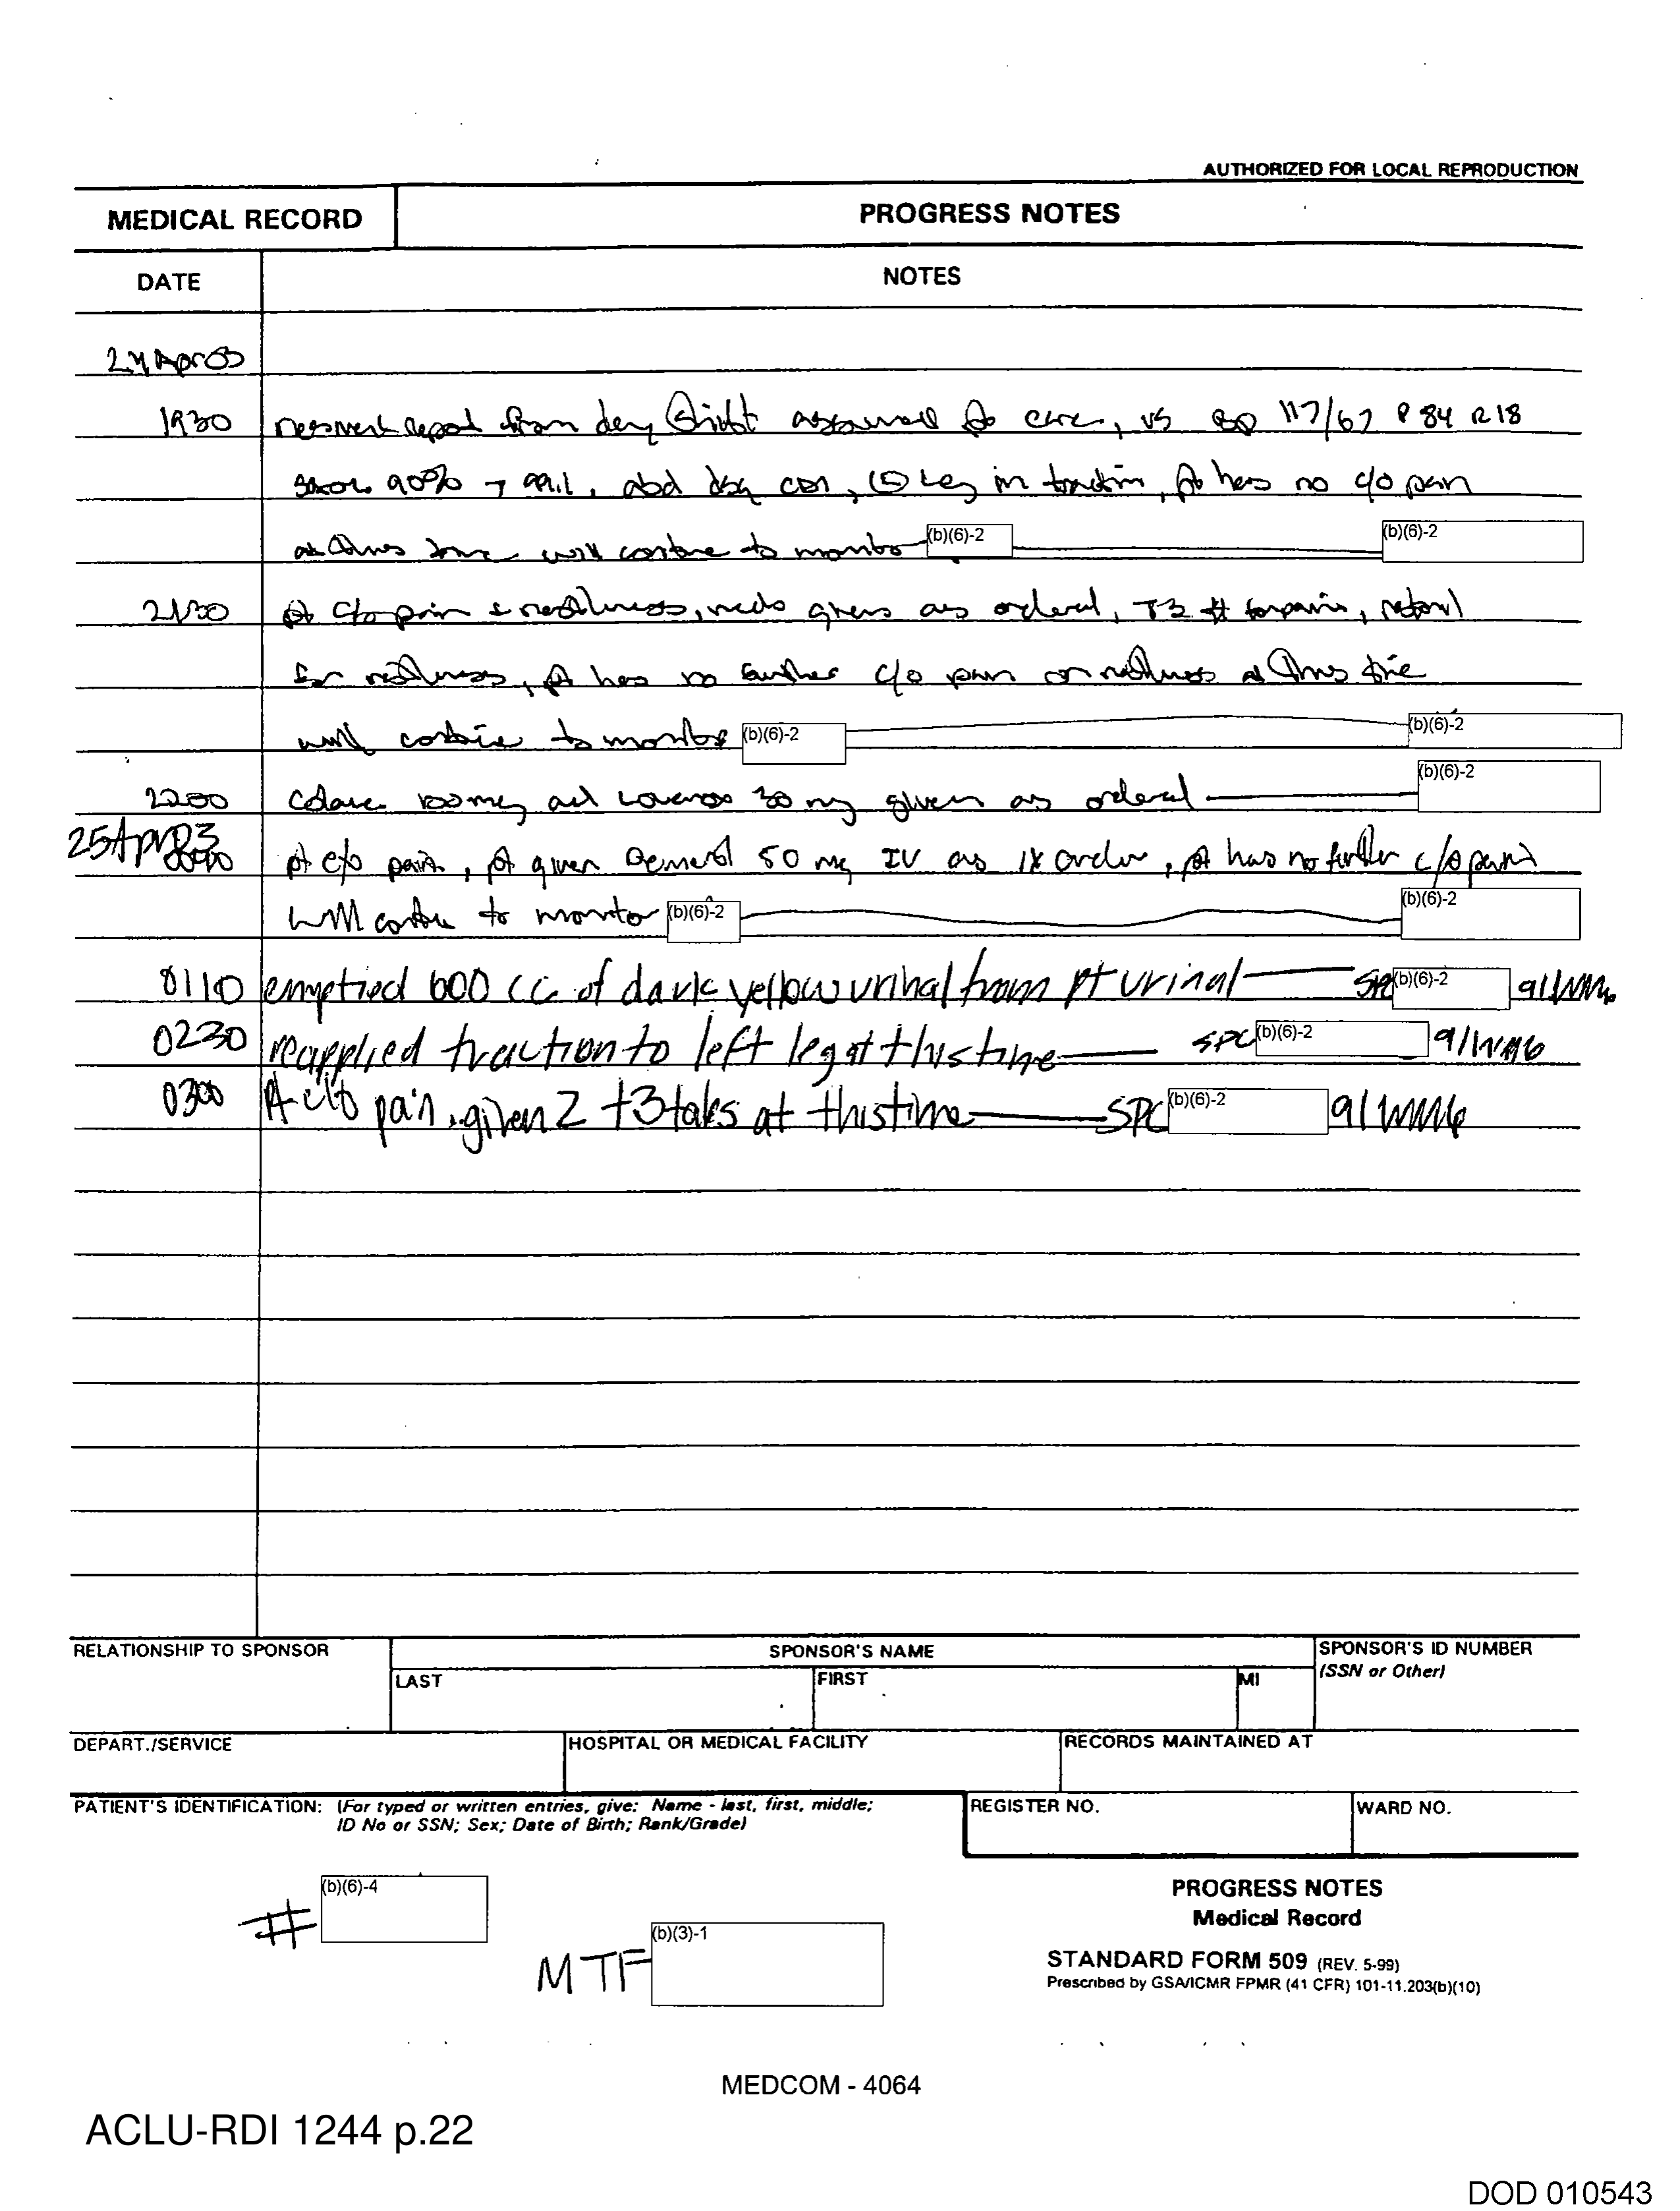 AUTHORIZED FOR LOCAL REPRODUCTION
MEDICAL RECORD
PROGRESS NOTES
DATE
NOTES
24 Apr 03
1930 report from day shift assumed pt care, vs BP 117/67 P 84 R 18
90% T 99.1, abd dsg CDI, (L) leg in traction, pt has no c/o pain
at this time will continue to monitor (b)(6)-2 (b)(6)-2
pt c/o pain & restlessness, meds given as ordered, T3 # for pain,
for restlessness, pt has no further c/o pain or restlessness at this time
will continue to monitor (b)(6)-2 (b)(6)-2
2200 Colace 100 mg and Lovenox 30 mg given as ordered (b)(6)-2
25 Apr 03
pt c/o pain, pt given Demerol 50 mg IV as 1x order, pt has no further c/o pain
will continue to monitor (b)(6)-2 (b)(6)-2
0110 emptied 600 cc of dark yellow urinal from pt urinal SPC (b)(6)-2 91WM6
0230 reapplied traction to left leg at this time SPC (b)(6)-2 91WM6
0300 Pt c/o pain, given 2 t3 tabs at this time SPC (b)(6)-2 91WM6
RELATIONSHIP TO SPONSOR
SPONSOR'S NAME
SPONSOR'S ID NUMBER
(SSN or Other)
LAST
FIRST
MI
DEPART./SERVICE
HOSPITAL OR MEDICAL FACILITY
RECORDS MAINTAINED AT
PATIENT'S IDENTIFICATION: (For typed or written entries, give: Name - last, first, middle;
ID No or SSN; Sex; Date of Birth; Rank/Grade)
REGISTER NO.
WARD NO.
# (b)(6)-4
MTF (b)(3)-1
PROGRESS NOTES
Medical Record
STANDARD FORM 509 (REV. 5-99)
Prescribed by GSA/ICMR FPMR (41 CFR) 101-11.203(b)(10)
MEDCOM - 4064
ACLU-RDI 1244 p.22
DOD 010543